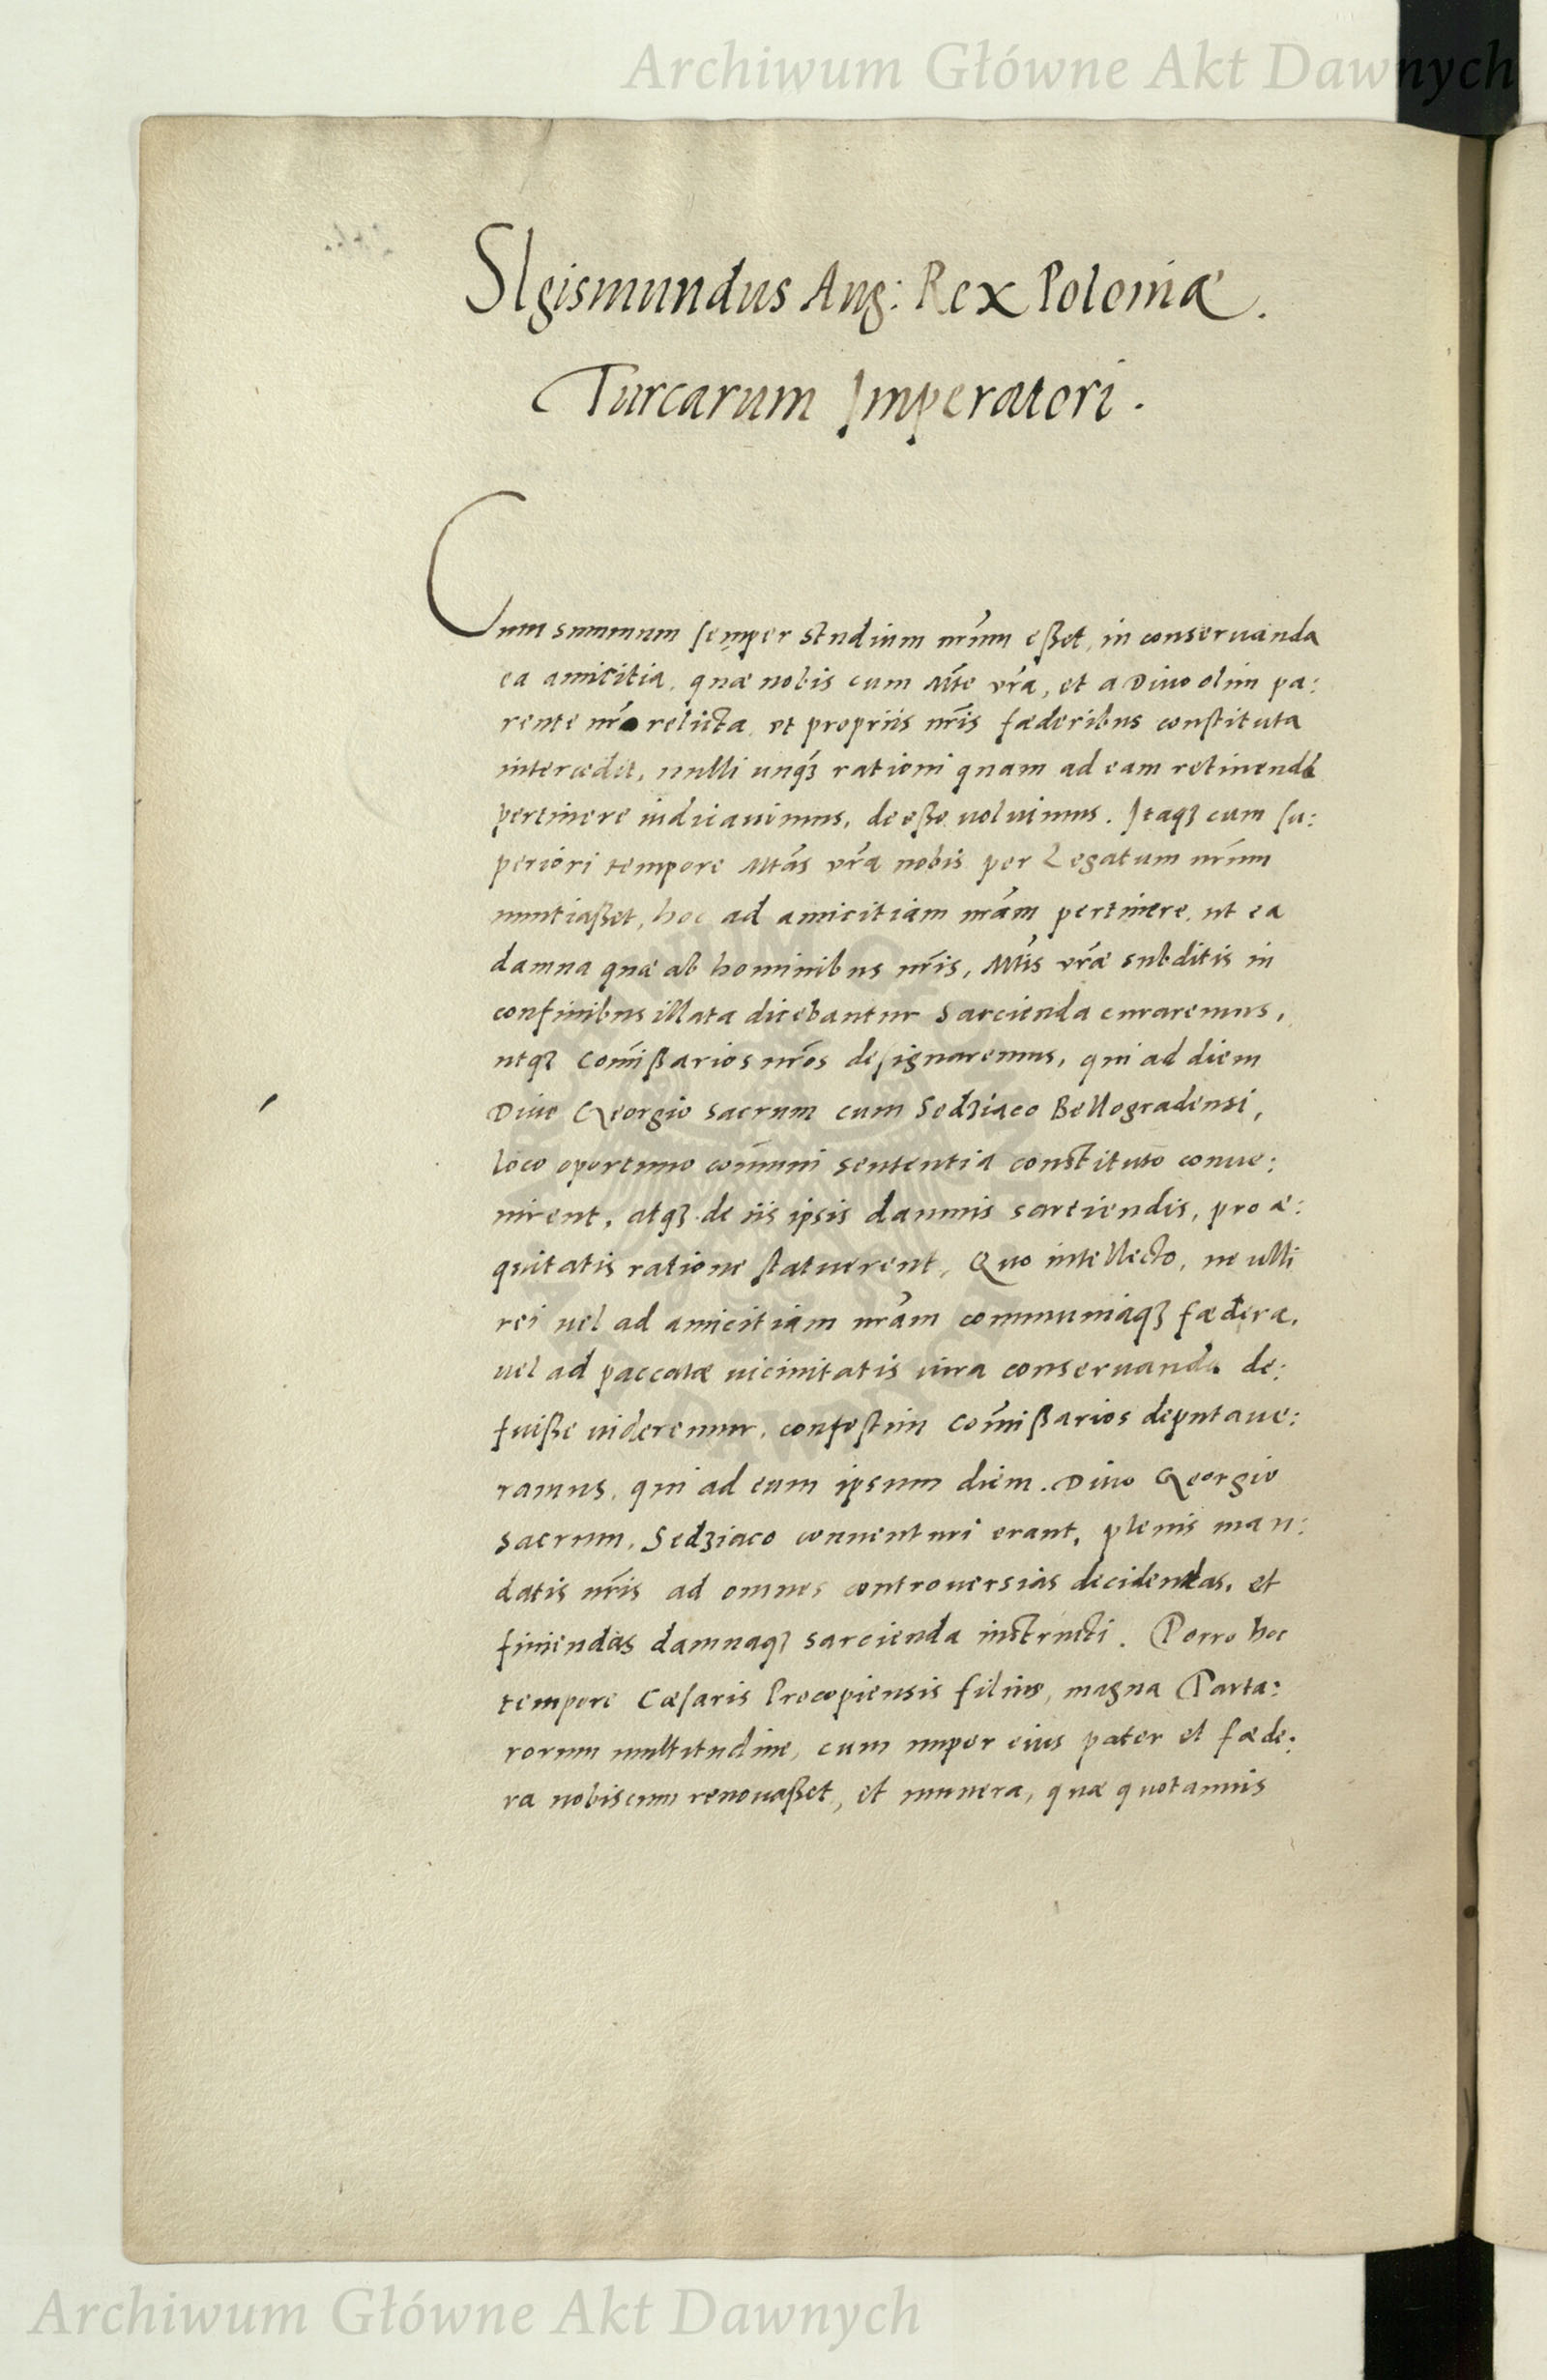 Archiwum Główne Akt Dawnych
SIgismundus Aug: Rex Poloniæ.
Turcarum Imperatori.
Cum summum semper studium nr̃um eßet, in conseruanda
ea amicitia, quæ nobis cum Mt̃e vr̃a, et a Diuo olim pa:
rente nr̃o relicta, et propriis nr̃is fœderibus constituta
intercedit, nulli unq̃ȝ rationi quam ad eam retinendã
pertinere iudicauimus, deeße uoluimus. Itaqȝ cum su:
periori tempore Mt̃as vr̃a nobis per Legatum nr̃um
nuntiaßet, hoc ad amicitiam nr̃am pertinere, ut ea
damna quæ ab hominibus nr̃is, Mt̃is vr̃æ subditis in
confinibus illata dicebantur sarcienda curaremus,
utqȝ Com̃ißarios nr̃os designaremus, qui ad diem
Diuo Georgio sacrum cum Sedȝiaco Bellogradensi,
loco oportuno com̃uni sententia constituto conue:
nirent, atqȝ de iis ipsis damnis sartiendis, pro æ:
quitatis ratione statuerent, Quo intellecto, ne ulli
rei uel ad amicitiam nr̃am communiaqȝ fœdera,
uel ad paccatæ uicinitatis iura conseruanda de:
fuiße uideremur, confestim Com̃ißarios deputaue:
ramus, qui ad eum ipsum diem Diuo Georgio
sacrum, Sedȝiaco conuenturi erant, plenis man:
datis nr̃is ad omnes controuersias decidendas, et
finiendas damnaqȝ sarcienda instructi. Porro hoc
tempore Cæsaris Precopiensis filius, magna Tarta:
rorum multitudine, cum nuper eius pater et fœde:
ra nobiscum renouaßet, et munera, quæ quotannis
Archiwum Główne Akt Dawnych